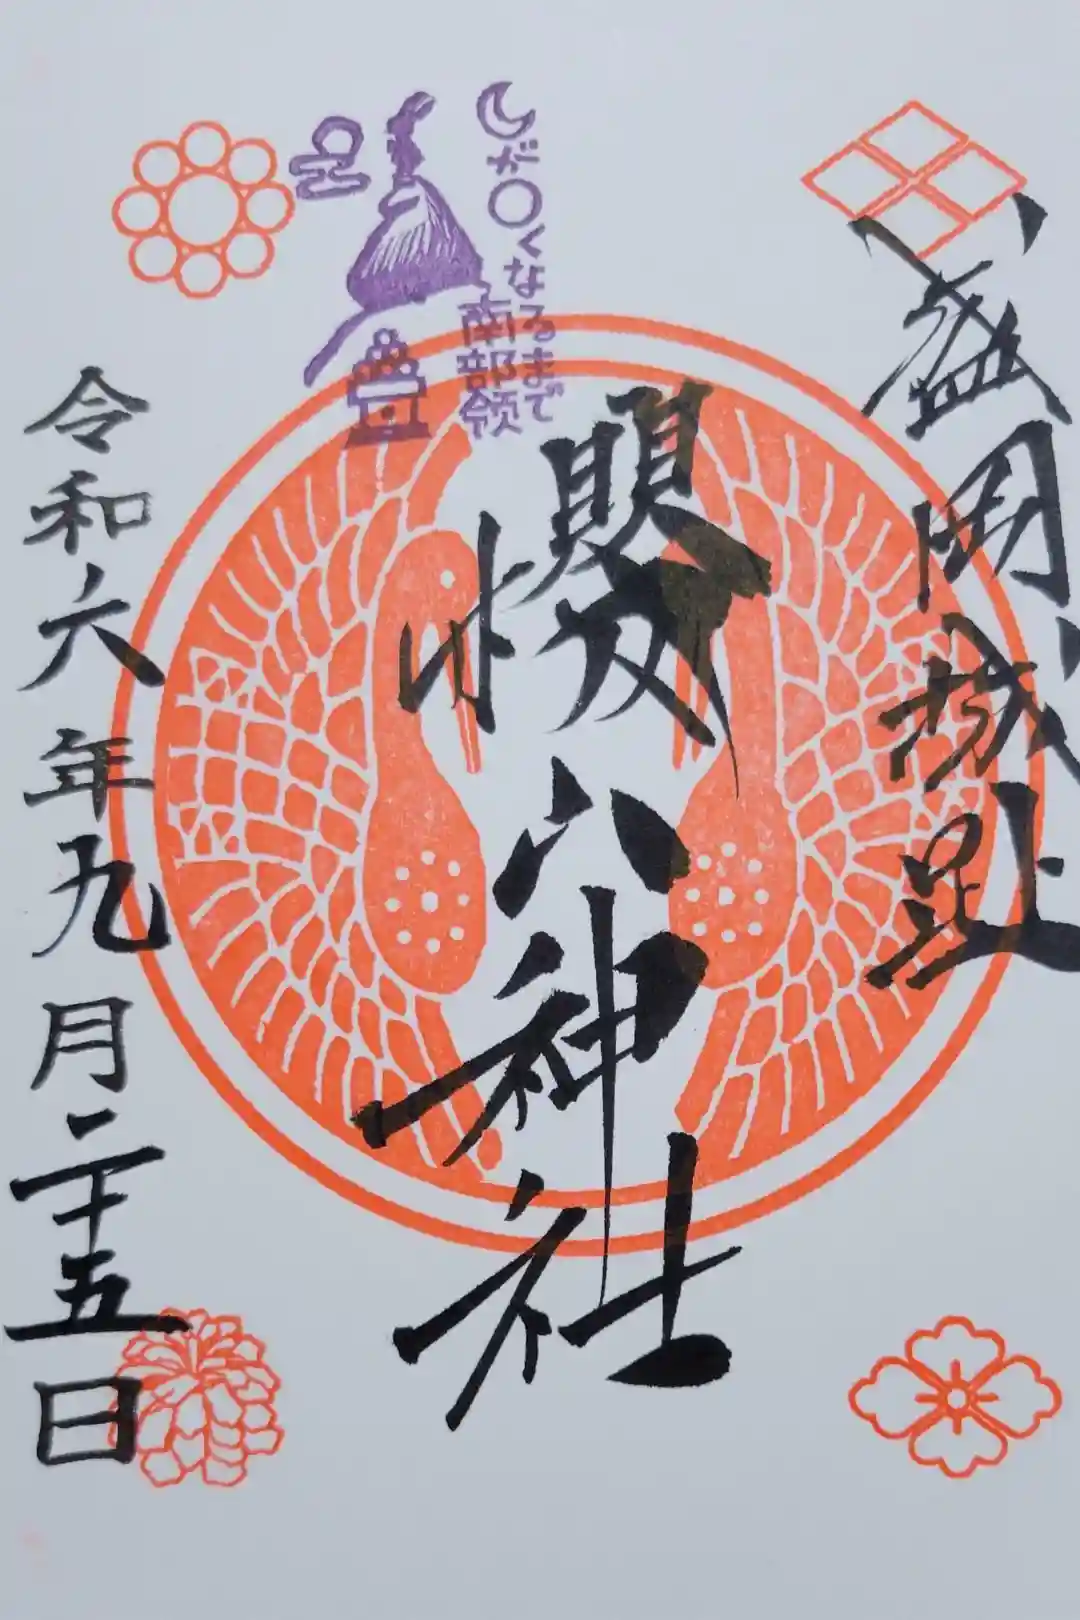 盛岡城趾
櫻山神社
令和六年九月二十五日
が〇くなるまで
南部領